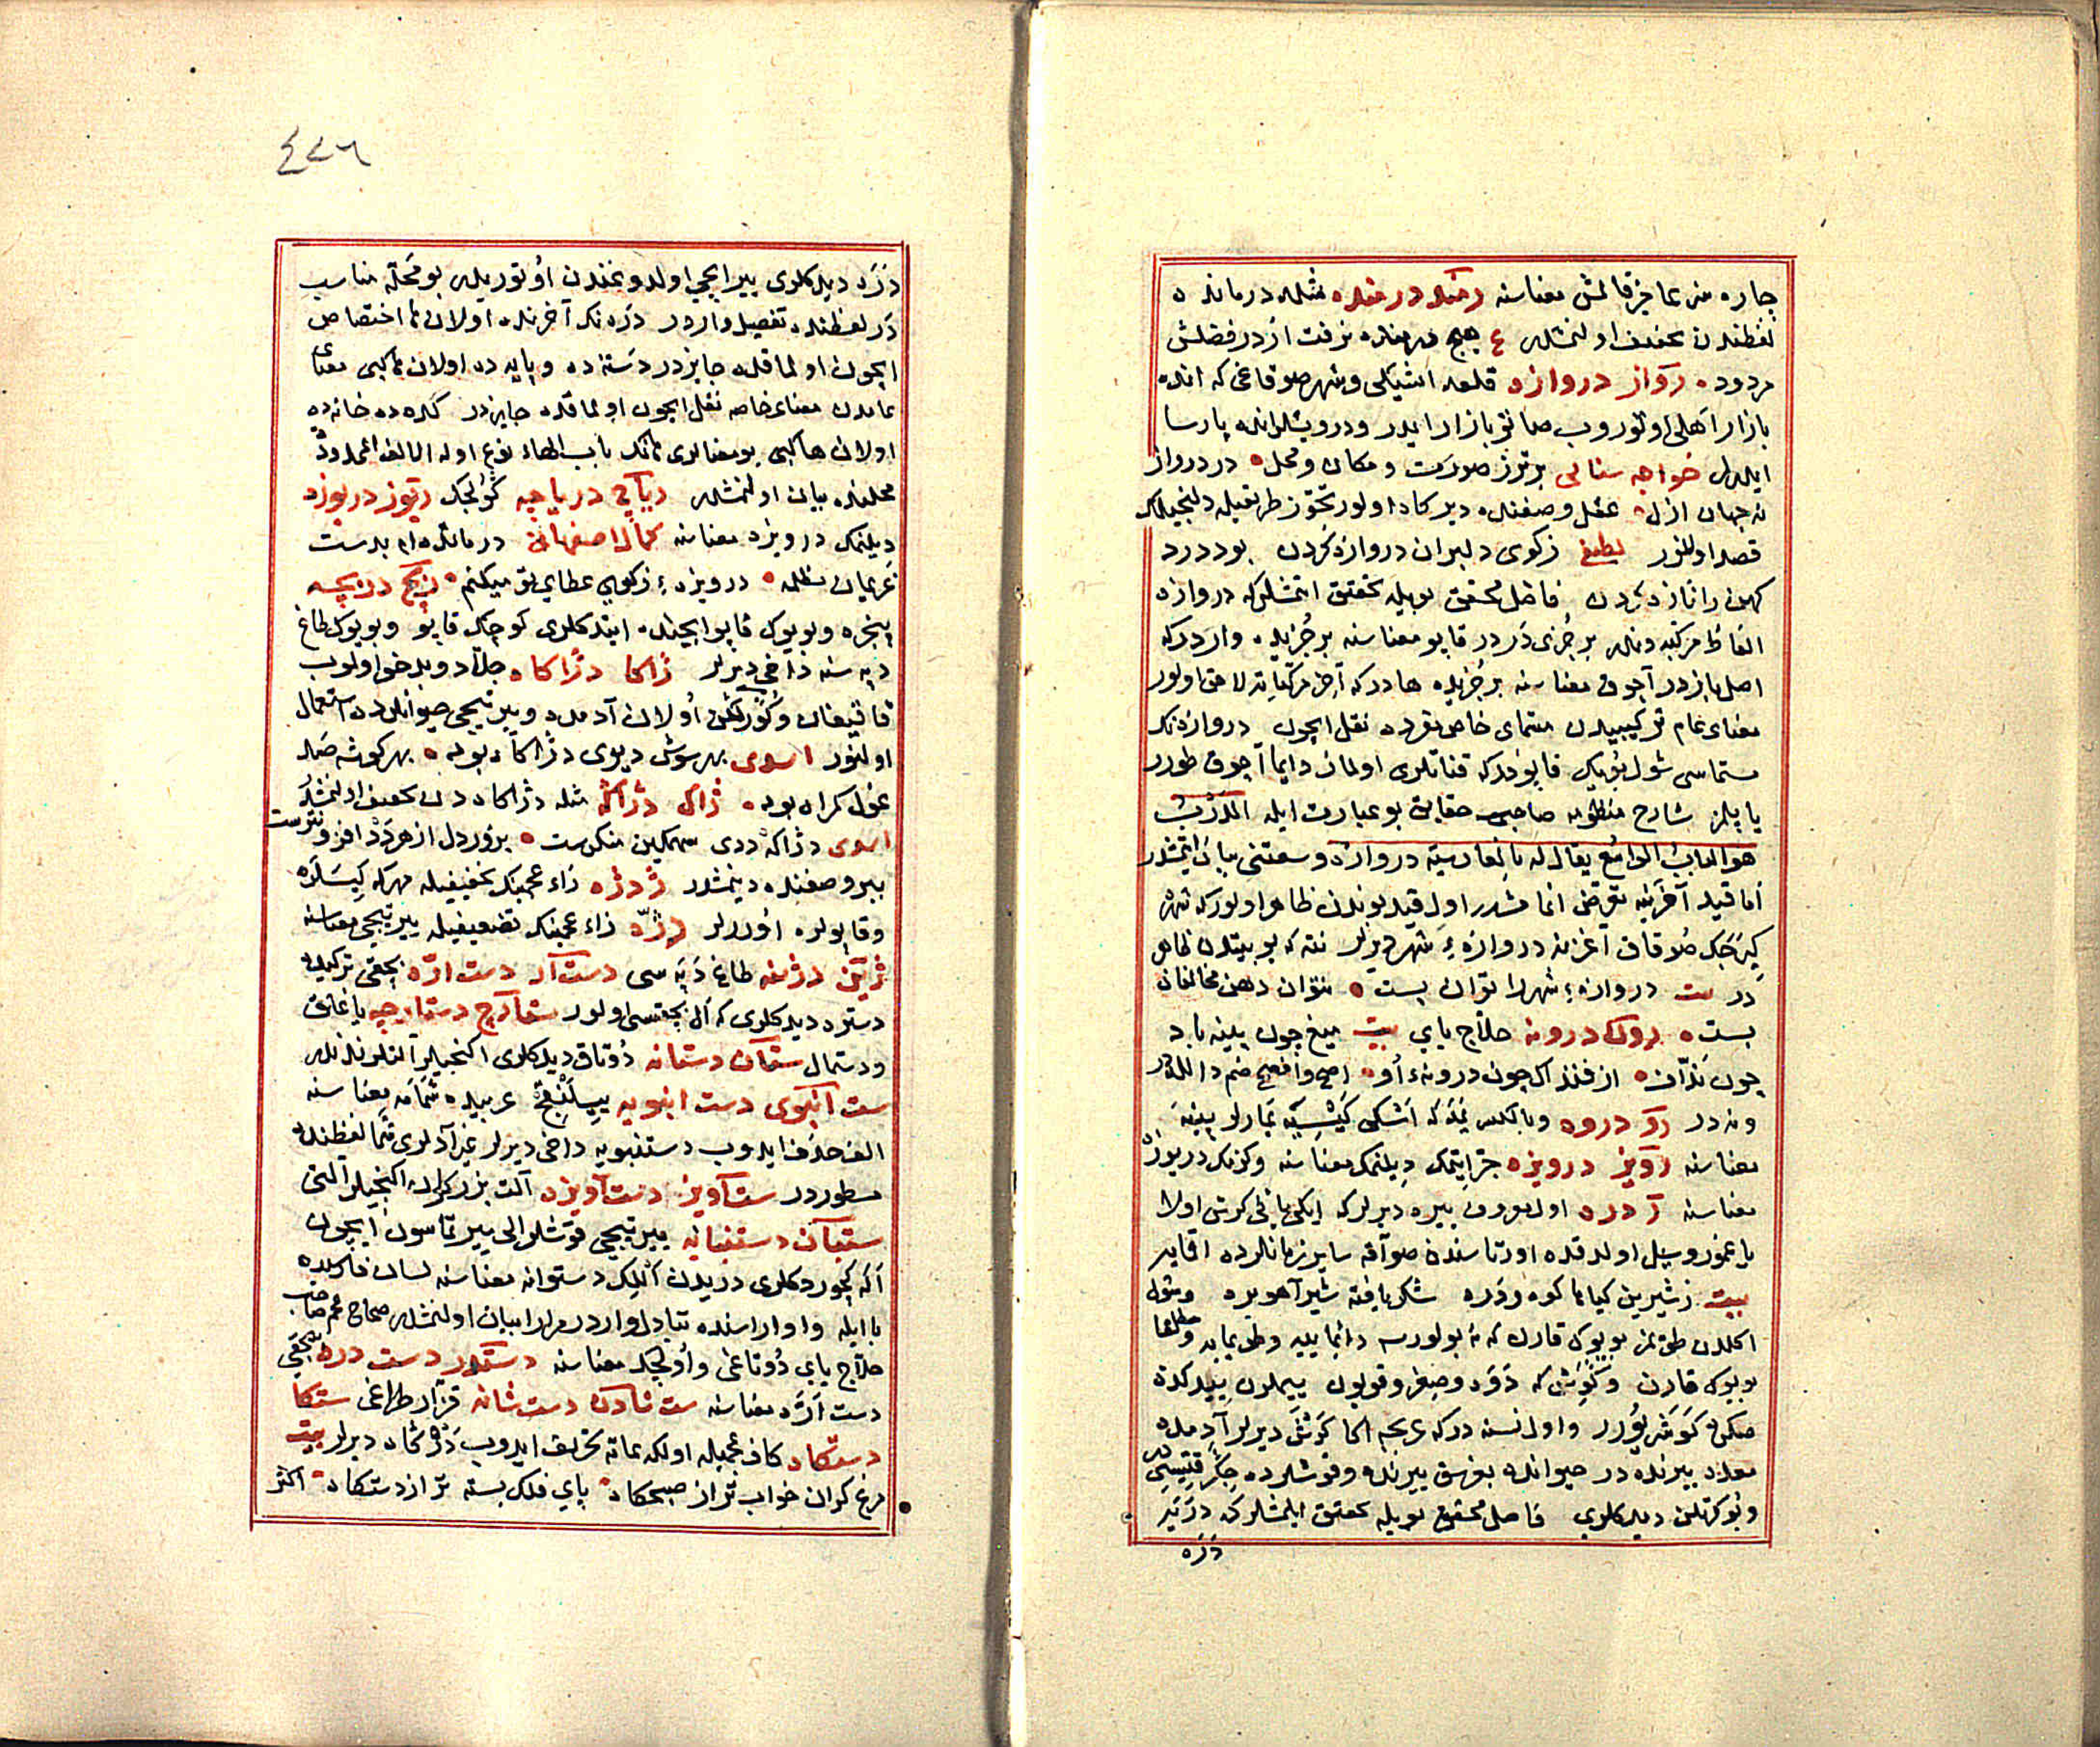 چاره سز عاجز قالمش معناسنه رمنده درمنده مثله درمانده
لفظندن مخفف اولنمشدر ع هیچ درمنده نرفت از در فضلش
مردود رواز دروازه قلعه اشیکی و شهر صوقاغی که انده
بازار اهلی اوتوروب صاتو بازار ایدر و درویشلر انده پارسا
ایدرلر خواجه سنائی برتر ز صورت و مکان و محل در درواز
نه جهان ازل عقل وصفنده دیر کاد اولور تجوز طریقیله دلنجیلک
قصد اولنور لطیفی ز کوی دلبران دروازه کردن بود درد
کهن را تازه کردن فاضل محقق بویله تحقیق ایتمشلر که دروازه
الفاظ مرکبه دندر بر جزی در در قاپو معناسنه بر جزیده واردر که
اصل بازدر آچوق معناسنه بر جزیده هادر که آخر مرکباته لاحق اولور
معنای عام ترکیبیدن مسمای خاص مفرده نقل ایچون دروازه نک
مسماسی شول بویوک قاپودر که قناتلری اولمان دایما آچوق طورر
یاپلز شارح منظومه صاحبی حقایق بو عبارت ایله الدرب
هو الباب الواسع یقال له بالفارسیة دروازه وسعتنی بیان ایتمشدر
اما قید آخرینه تعرض اتمامشدر اول قید بوندن ظاهر اولور که شهره
کیرجک صوقاق آغزینه دروازهٔ شهر دیرلر نته که بو بیتدن ظاهر
در بیت دروازهٔ شهر را توان بست نتوان دهن مخالفان
بست رون درونه حلاج یایی بیت میغ چون پنبه باد
چون نداف ازفنداک چون درونهٔ او اصح و افصح ضم دالله در
ونه در رو دروه وبالکس یمه که اشکی کیشییه یمارلر پینه
معناسنه رویز درویزه جر ایتمک دیلنمک معناسنه وکزمک دریوزه
معناسنه ر دره اول یوروق ییره دیرلر که ایکی یانی کرش اولا
یاغمور و سیل اولدقده اورتاسندن صو آقه سایر زمانلرده اقایه
بیت ز شیرین کیاها کوه و دره شکر یافته شیر آهو بره و شوله
اکلدن طویمز بویوک قارن که نه بولورسه دائما ییه و طویمایه و مطلقا
بویوک قارن
معده ییرنده در حیوانده بغرسق ییرنده و قوشلرده
دیدکلری فاضل محقق بویله تحقیق ایلمشلر که
دره
٤٧٦
دره دیدکلری ییر ایچی اولدوغندن اوتوریدر بو محله مناسب
در لفظنده تفصیل واردر دره نک آخرنده اولان ها اختصاص
ایچون اولماقده جایزدر دسته ده و پایه ده اولان ها کبی معنای
عامدن معنای خاصه نقل ایچون اولماقده جایزدر کله ده خانه ده
اولان ها کبی بو معنالری هانک باب الهاء نوع اوله الالف الممدوده
محلنده بیان اولنمشدر ریاچ دریاچه کولجک ریوز دریوزه
دیلنمک درویزه معناسنه کمال اصفهانی درمانده ام بدست
غریمان مظلمه درویزهٔ ز کوی عطای تو میکنم ریچ دریچه
پنجره و بویوک قاپو ایچنده ایتدکلری کوچک قاپو و بویوک طاغ
دپه سنه داخی دیرلر ژاکا دژاکاه جلاد و بدخو اولوب
قاتیغان و اولان آدمده و ییرتیجی حیوانلرده استعمال
اولنور اسدی بهر سوش دیوی دژاکاه بود بهر کوشه صد
غول کمراه بود ژاکه دژاکه مثله دژاکاه دن مخفف اولنمشدر
اسدی دژاکه ددی سهمکین منکرست بزور دل از هر دد افزونترست
ببر وصفنده دینمشدر ژ دژه زاء عجمینک تخفیفیله مهر که کیسلره
و قاپولره اورلر ژه زاء عجمینک تضعیفیله ییرتیجی معناسنه
دژنه طاغ دپه سی دست ار دست اره بیچقی ترکیده
دستره دیدکلری که ال بیچقیسی اولور ستارچ دستارچه یاغلق
و دستمال ستان دستانه دوتاق دیدکلری اکنجیلر آلتلرندندر
ست انبوی دست انبویه عربیده شمامه معناسنه
الفی حذف ایدوب دستنبویه داخی دیرلر غیر آدلری شما لفظنده
مسطوردر ست آویز دست آویزه آلت بزرکران اکنجیلر آلتی
ستبان دستبانه ییرتیجی قوشلر الی ییرتماسون ایچون
اله کچوردکلری دریدن اللک دستوانه معناسنه لسان فارسیده
با ایله واو اراسنده تبادل واردر مرارا بیان اولنمشدر صحاح عجم صاحبی
حلاج یایی دوتاغی و اولجک معناسنه دستدر دست دره بیچقی
دست اره معناسنه ست شان دست شانه قزاز طراغی ستکا
دستکاه کاف عجمیله اولکه عامه تحریف ایدوب دزکاه دیرلر بیت
مرغ کران خواب تر از صبحکاه پای فلک بسته تر از دستکاه اکثر